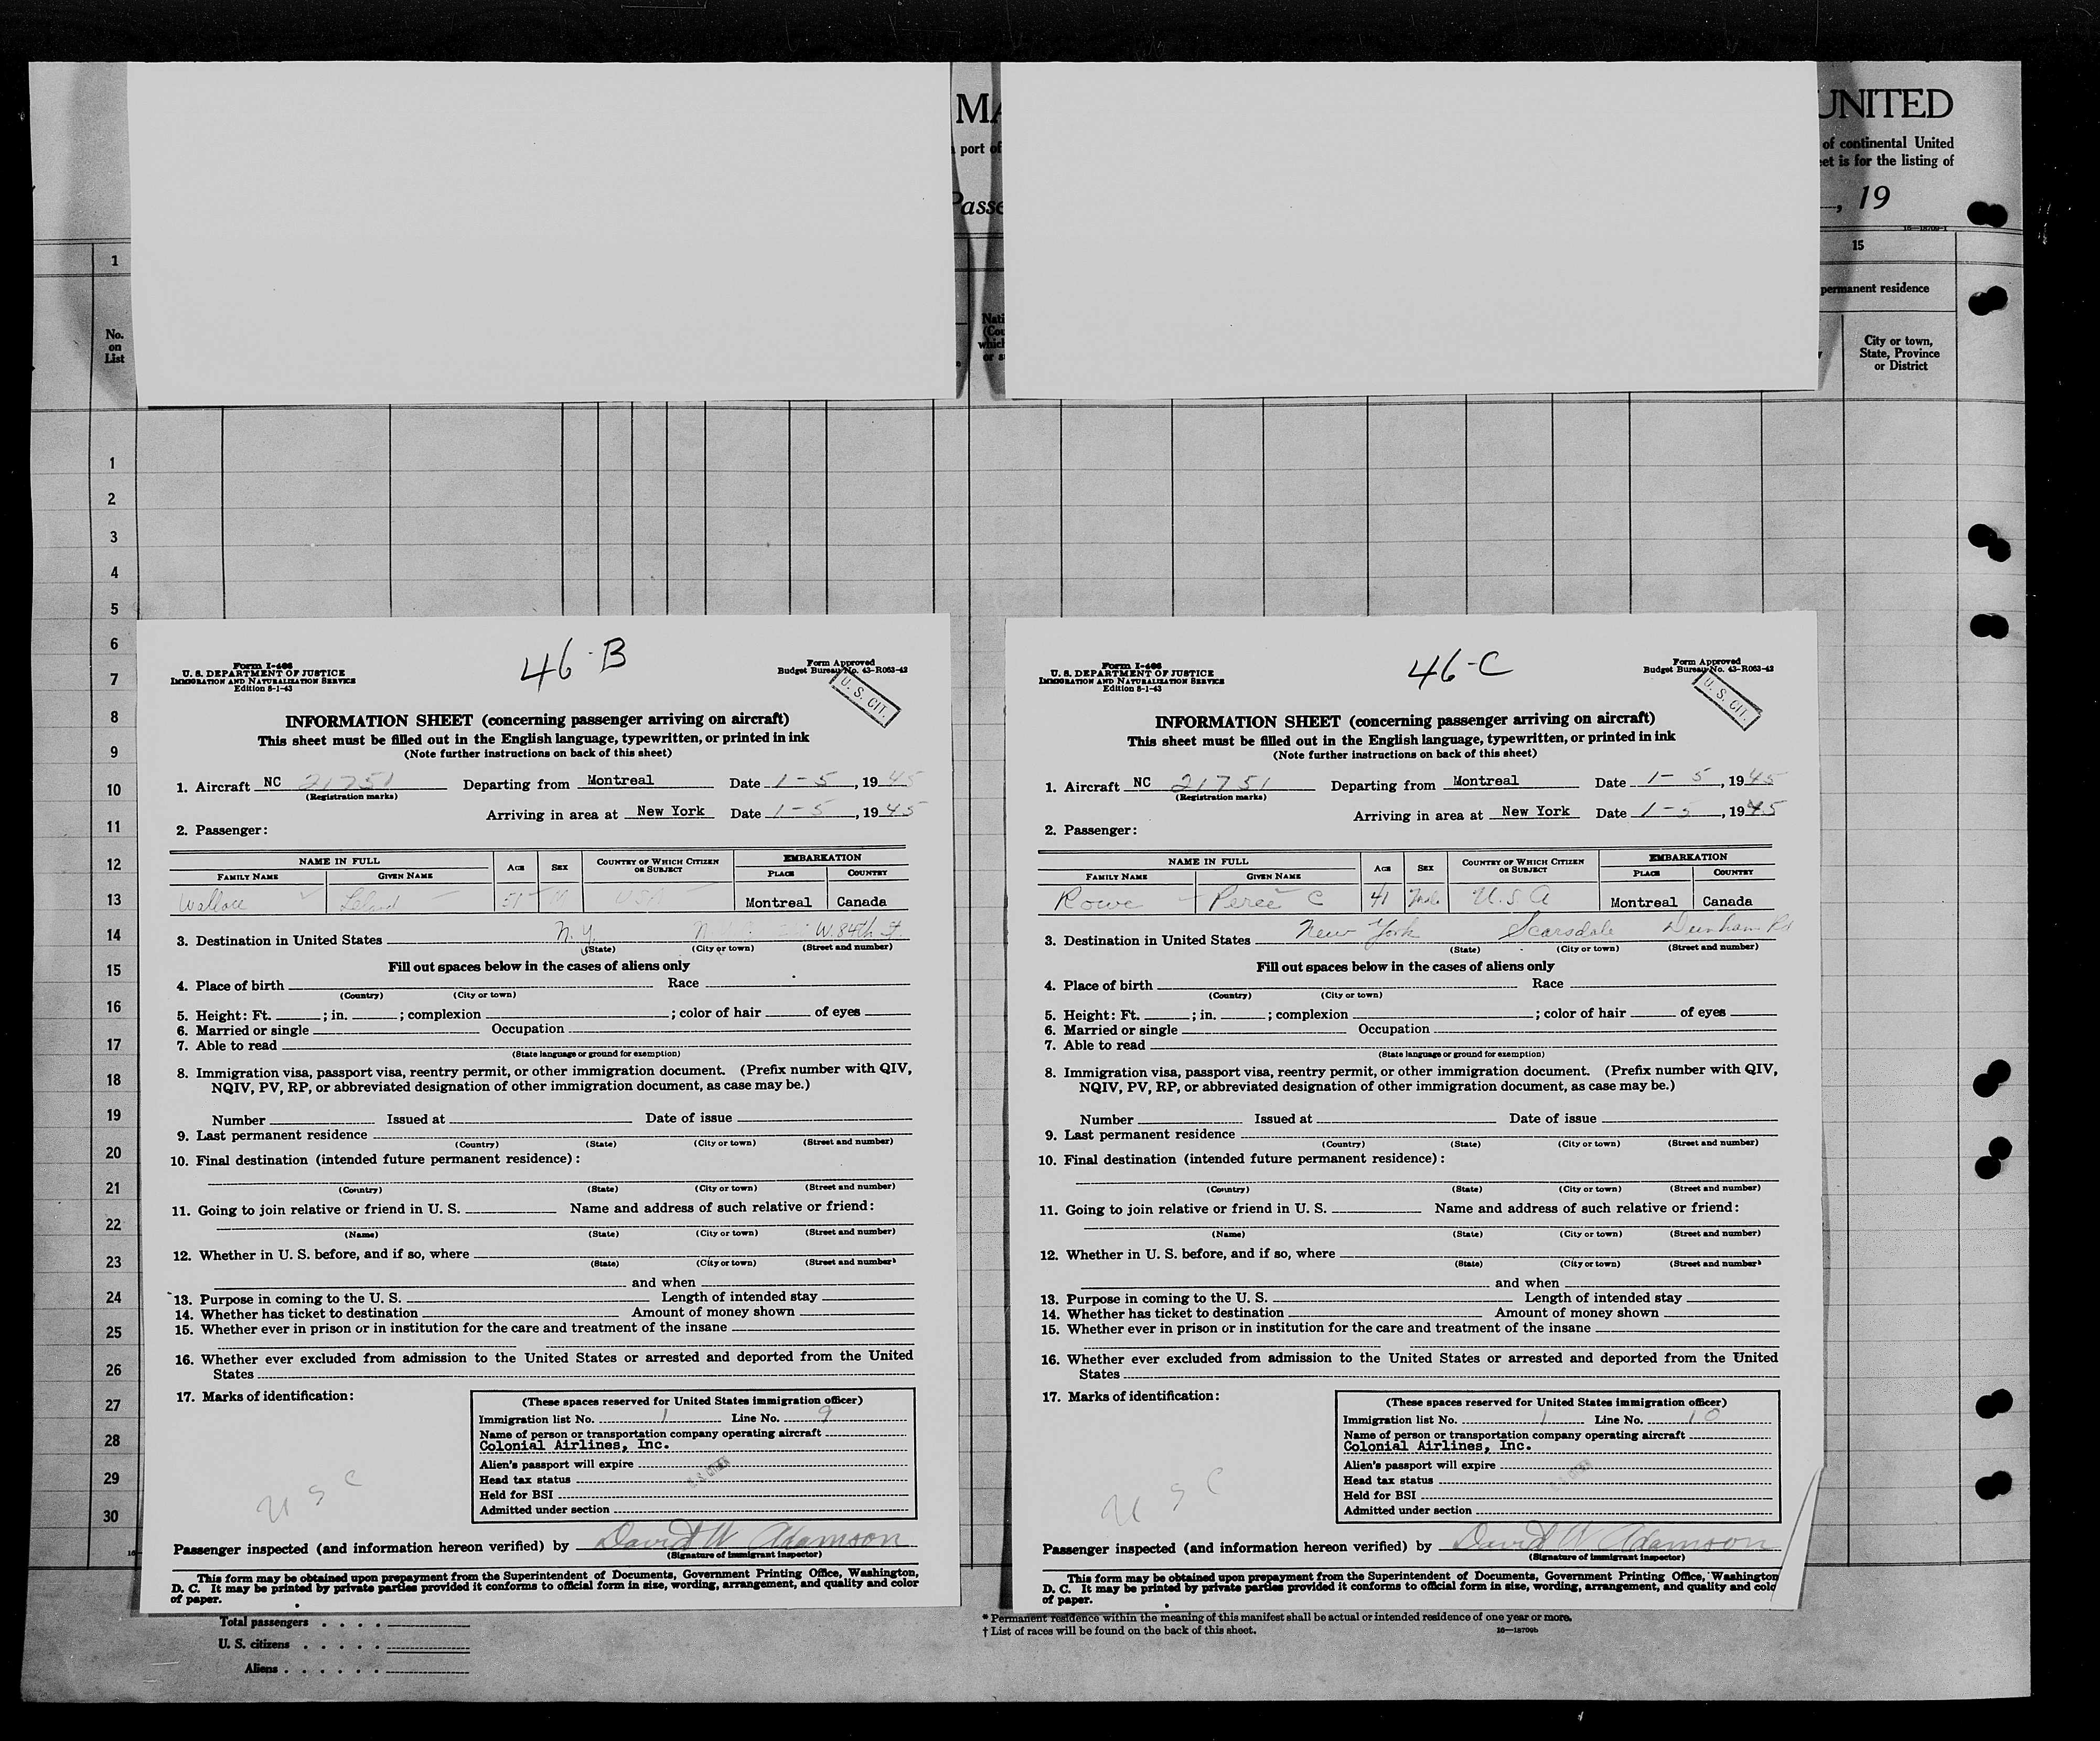 UNITED
port of
of continental United
et is for the listing of
Passe
, 19
16—18709-1
1
15
permanent residence
No.
on
List
City or town,
State, Province
or District
1
2
3
4
5
6
7
8
9
10
11
12
13
14
15
16
17
18
19
20
21
22
23
24
25
26
27
28
29
30
46-B
Form I-466
U. S. DEPARTMENT OF JUSTICE
IMMIGRATION AND NATURALIZATION SERVICE
Edition 8-1-43
Form Approved
Budget Bureau No. 43-R063-42
U. S. CIT.
INFORMATION SHEET (concerning passenger arriving on aircraft)
This sheet must be filled out in the English language, typewritten, or printed in ink
(Note further instructions on back of this sheet)
1. Aircraft NC 21751 Departing from Montreal Date 1-5, 1945
(Registration marks)
Arriving in area at New York Date 1-5, 1945
2. Passenger:
NAME IN FULL AGE SEX COUNTRY OF WHICH CITIZEN OR SUBJECT EMBARKATION
FAMILY NAME GIVEN NAME PLACE COUNTRY
Wallace Leland USA Montreal Canada
3. Destination in United States N.Y. W. 84th St.
(State) (City or town) (Street and number)
Fill out spaces below in the cases of aliens only
4. Place of birth Race
(Country) (City or town)
5. Height: Ft. ; in. ; complexion ; color of hair of eyes
6. Married or single Occupation
7. Able to read
(State language or ground for exemption)
8. Immigration visa, passport visa, reentry permit, or other immigration document. (Prefix number with QIV,
NQIV, PV, RP, or abbreviated designation of other immigration document, as case may be.)
Number Issued at Date of issue
9. Last permanent residence
(Country) (State) (City or town) (Street and number)
10. Final destination (intended future permanent residence):
(Country) (State) (City or town) (Street and number)
11. Going to join relative or friend in U. S. Name and address of such relative or friend:
(Name) (State) (City or town) (Street and number)
12. Whether in U. S. before, and if so, where
(State) (City or town) (Street and number)
and when
13. Purpose in coming to the U. S. Length of intended stay
14. Whether has ticket to destination Amount of money shown
15. Whether ever in prison or in institution for the care and treatment of the insane
16. Whether ever excluded from admission to the United States or arrested and deported from the United
States
17. Marks of identification:
(These spaces reserved for United States immigration officer)
Immigration list No. 1 Line No. 9
Name of person or transportation company operating aircraft
Colonial Airlines, Inc.
Alien's passport will expire
Head tax status
Held for BSI
Admitted under section
U S C
Passenger inspected (and information hereon verified) by David W Adamson
(Signature of immigrant inspector)
This form may be obtained upon prepayment from the Superintendent of Documents, Government Printing Office, Washington,
D. C. It may be printed by private parties provided it conforms to official form in size, wording, arrangement, and quality and color
of paper.
46-C
Form I-466
U. S. DEPARTMENT OF JUSTICE
IMMIGRATION AND NATURALIZATION SERVICE
Edition 8-1-43
Form Approved
Budget Bureau No. 43-R063-42
U. S. CIT.
INFORMATION SHEET (concerning passenger arriving on aircraft)
This sheet must be filled out in the English language, typewritten, or printed in ink
(Note further instructions on back of this sheet)
1. Aircraft NC 21751 Departing from Montreal Date 1-5, 1945
(Registration marks)
Arriving in area at New York Date 1-5, 1945
2. Passenger:
NAME IN FULL AGE SEX COUNTRY OF WHICH CITIZEN OR SUBJECT EMBARKATION
FAMILY NAME GIVEN NAME PLACE COUNTRY
Rowe C 41 U.S A Montreal Canada
3. Destination in United States New York Scarsdale Dunham Rd
(State) (City or town) (Street and number)
Fill out spaces below in the cases of aliens only
4. Place of birth Race
(Country) (City or town)
5. Height: Ft. ; in. ; complexion ; color of hair of eyes
6. Married or single Occupation
7. Able to read
(State language or ground for exemption)
8. Immigration visa, passport visa, reentry permit, or other immigration document. (Prefix number with QIV,
NQIV, PV, RP, or abbreviated designation of other immigration document, as case may be.)
Number Issued at Date of issue
9. Last permanent residence
(Country) (State) (City or town) (Street and number)
10. Final destination (intended future permanent residence):
(Country) (State) (City or town) (Street and number)
11. Going to join relative or friend in U. S. Name and address of such relative or friend:
(Name) (State) (City or town) (Street and number)
12. Whether in U. S. before, and if so, where
(State) (City or town) (Street and number)
and when
13. Purpose in coming to the U. S. Length of intended stay
14. Whether has ticket to destination Amount of money shown
15. Whether ever in prison or in institution for the care and treatment of the insane
16. Whether ever excluded from admission to the United States or arrested and deported from the United
States
17. Marks of identification:
(These spaces reserved for United States immigration officer)
Immigration list No. 1 Line No. 10
Name of person or transportation company operating aircraft
Colonial Airlines, Inc.
Alien's passport will expire
Head tax status
Held for BSI
Admitted under section
U S C
Passenger inspected (and information hereon verified) by David W Adamson
(Signature of immigrant inspector)
This form may be obtained upon prepayment from the Superintendent of Documents, Government Printing Office, Washington
D. C. It may be printed by private parties provided it conforms to official form in size, wording, arrangement, and quality and colo
of paper.
Total passengers
U. S. citizens
Aliens
* Permanent residence within the meaning of this manifest shall be actual or intended residence of one year or more.
† List of races will be found on the back of this sheet.
16—18709b